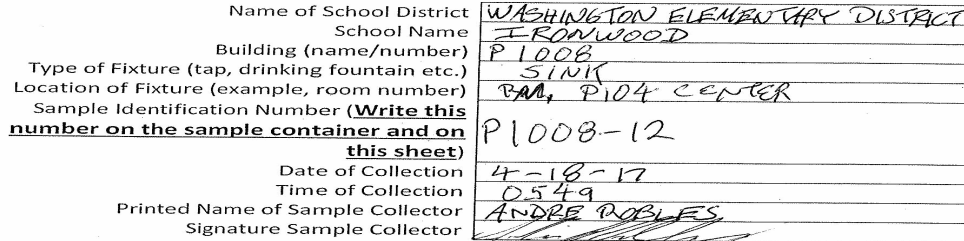 Name of School District WASHINGTON ELEMENTARY DISTRICT
School Name IRONWOOD
Building (name/number) P1008
Type of Fixture (tap, drinking fountain etc.) SINK
Location of Fixture (example, room number) P104 CENTER
Sample Identification Number (Write this
number on the sample container and on P1008-12
this sheet)
Date of Collection 4-18-17
Time of Collection 0549
Printed Name of Sample Collector ANDRE ROBLES
Signature Sample Collector